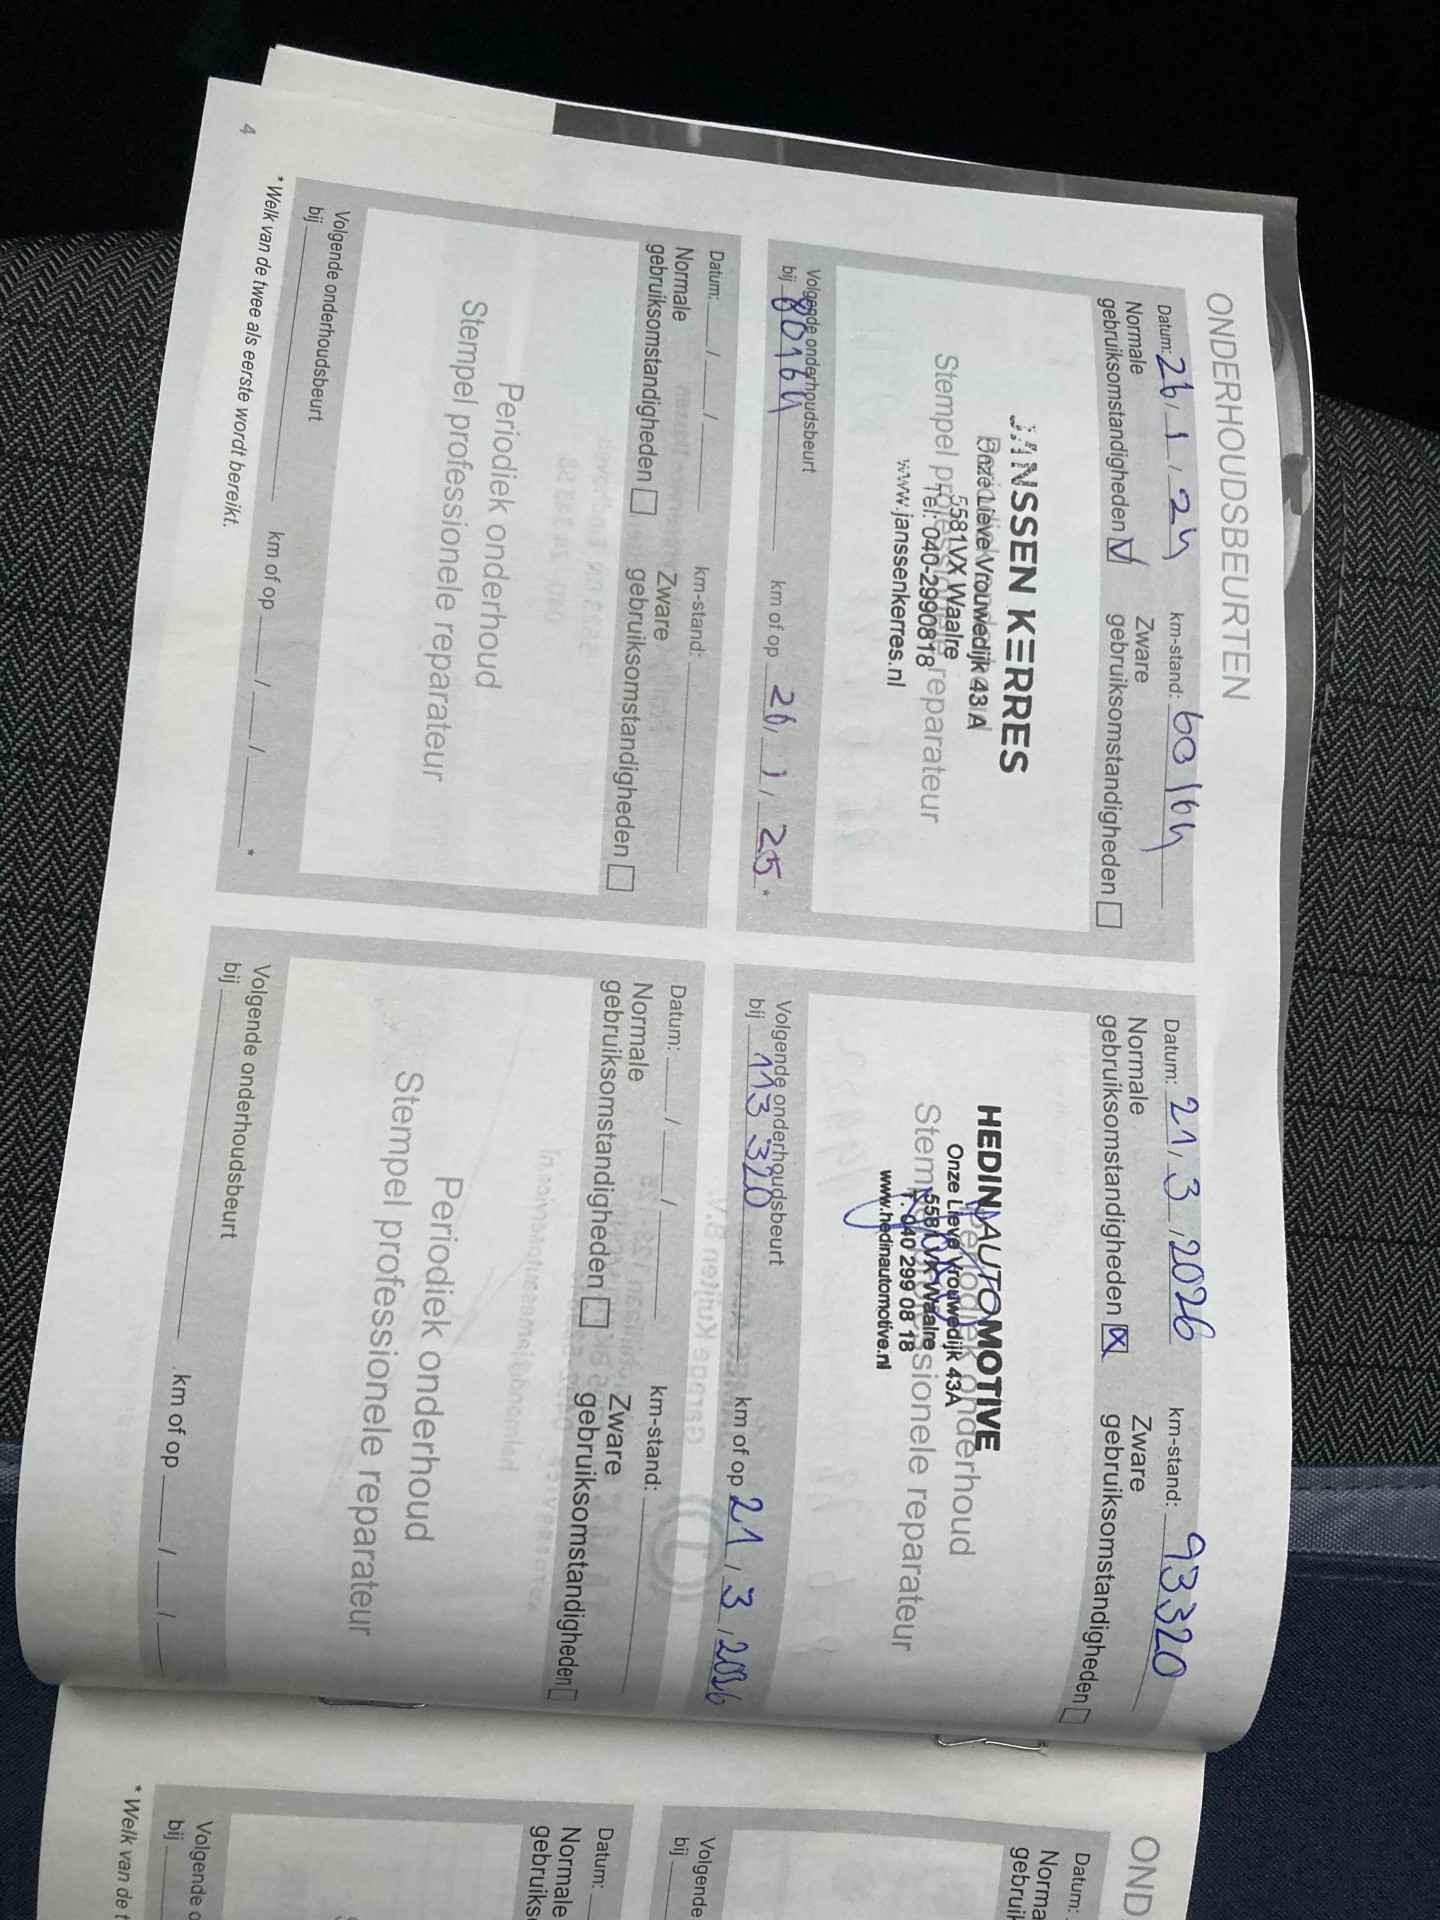 ONDERHOUDSBEURTEN
Datum: 26 / 1 / 24 km-stand: 60164
Normale gebruiksomstandigheden ☑ Zware gebruiksomstandigheden ☐
JANSSEN KERRES
Onze Lieve Vrouwedijk 43 A
5581VX Waalre
Tel: 040-2990818
www.janssenkerres.nl
Stempel professionele reparateur
Volgende onderhoudsbeurt
bij 80164 km of op 26 / 1 / 25 *
Datum: 21 / 3 / 2026 km-stand: 93320
Normale gebruiksomstandigheden ☒ Zware gebruiksomstandigheden ☐
HEDIN AUTOMOTIVE
Onze Lieve Vrouwedijk 43A
5581 VX Waalre
T. 040 299 08 18
www.hedinautomotive.nl
Periodiek onderhoud
Stempel professionele reparateur
Volgende onderhoudsbeurt
bij 113 320 km of op 21 / 3 / 2026
Datum: / / km-stand:
Normale gebruiksomstandigheden ☐ Zware gebruiksomstandigheden ☐
Periodiek onderhoud
Stempel professionele reparateur
Volgende onderhoudsbeurt
bij km of op / / *
Datum: / / km-stand:
Normale gebruiksomstandigheden ☐ Zware gebruiksomstandigheden ☐
Periodiek onderhoud
Stempel professionele reparateur
Volgende onderhoudsbeurt
bij km of op / /
* Welk van de twee als eerste wordt bereikt.
4
OND
Datum:
Norma
gebruik
Volgende
bij
Datum:
Normale
gebruiks
Volgende o
bij
* Welk van de t